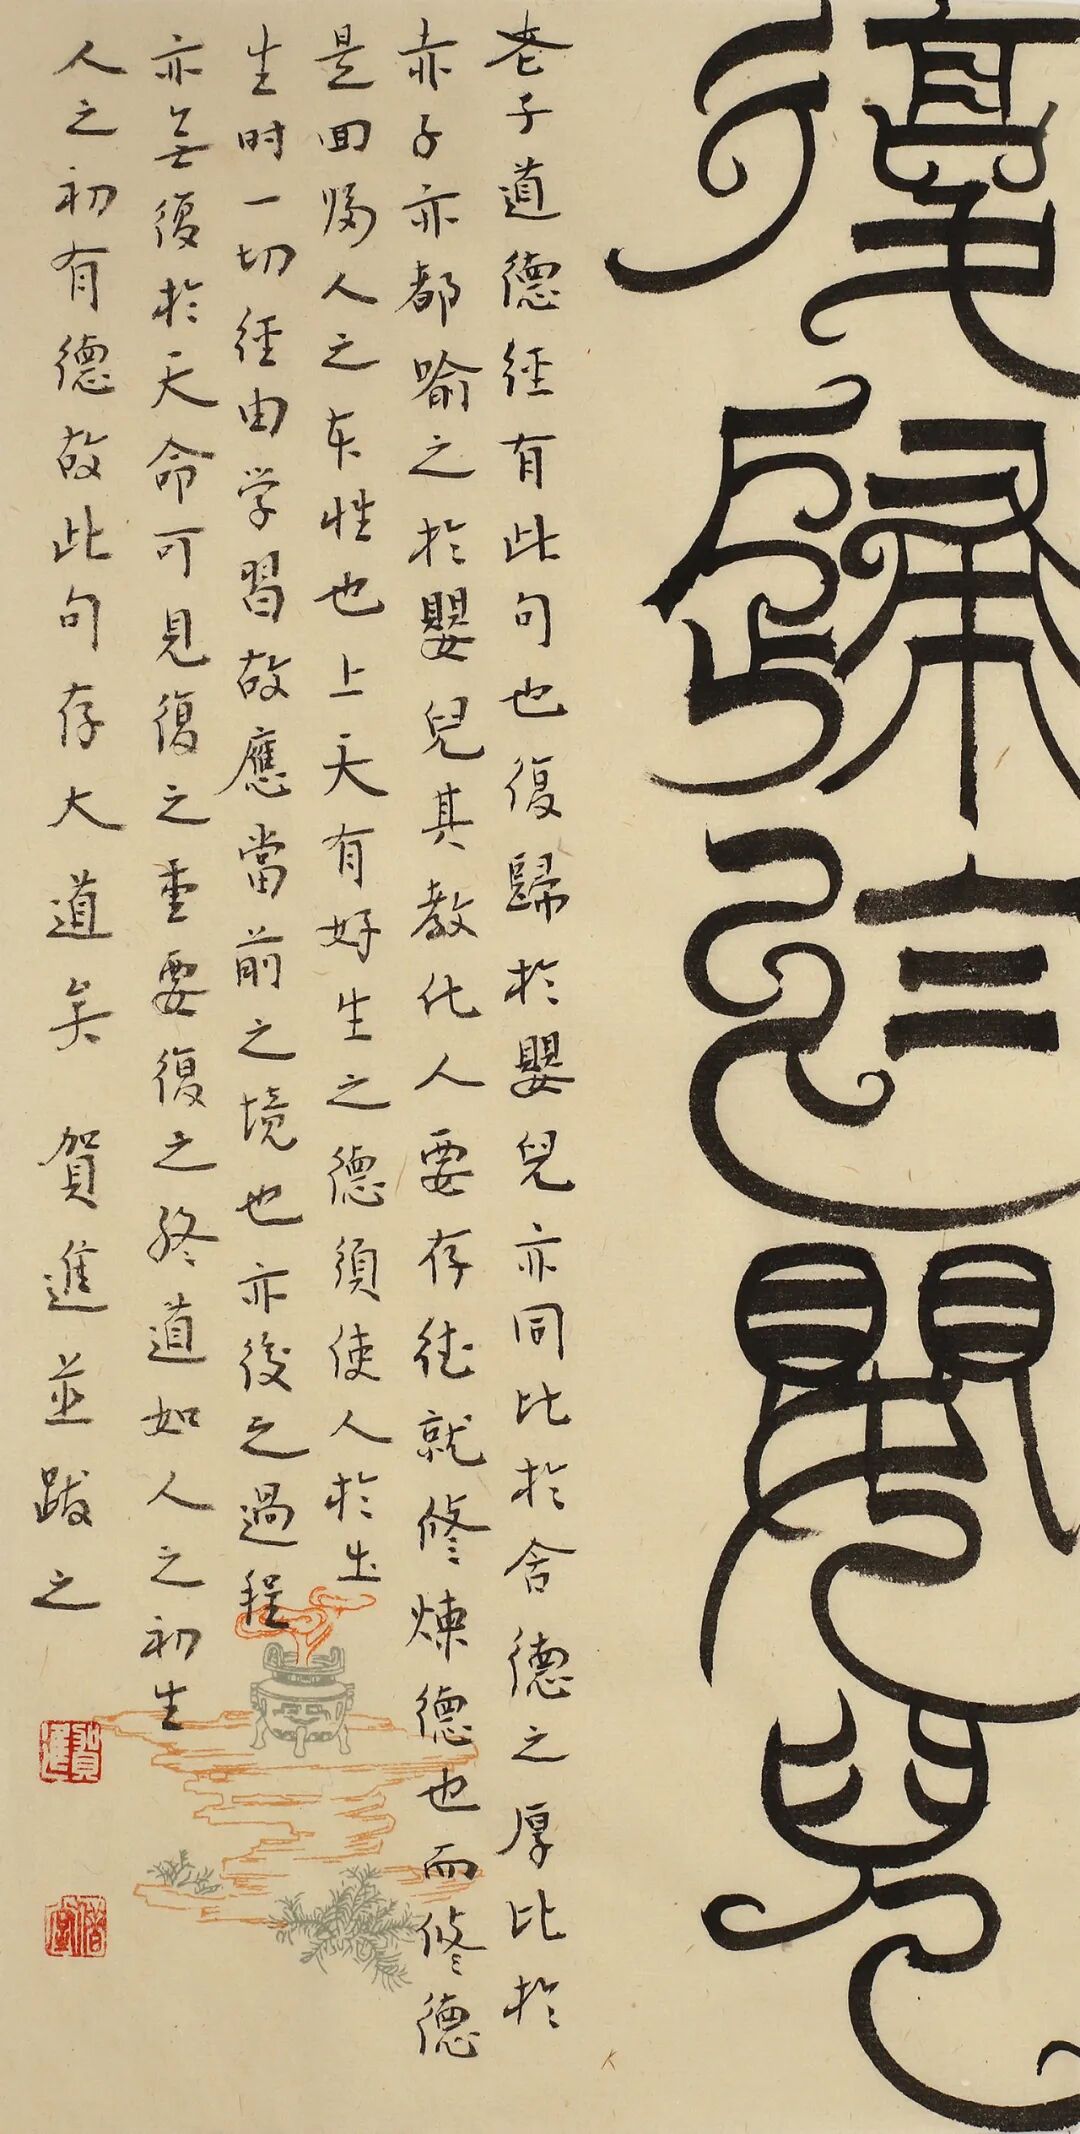 復歸於嬰兒
老子道德经有此句也復歸於嬰兒亦同比於含德之厚比於
赤子亦都喻之於嬰兒其教化人要存往就修煉德也而修德
是回归人之本性也上天有好生之德须使人於出
生时一切经由学習故應當前之境也亦復之過程
亦是復於天命可見復之重要復之终道如人之初生
人之初有德故此句存大道矣 賀進並跋之
賀進